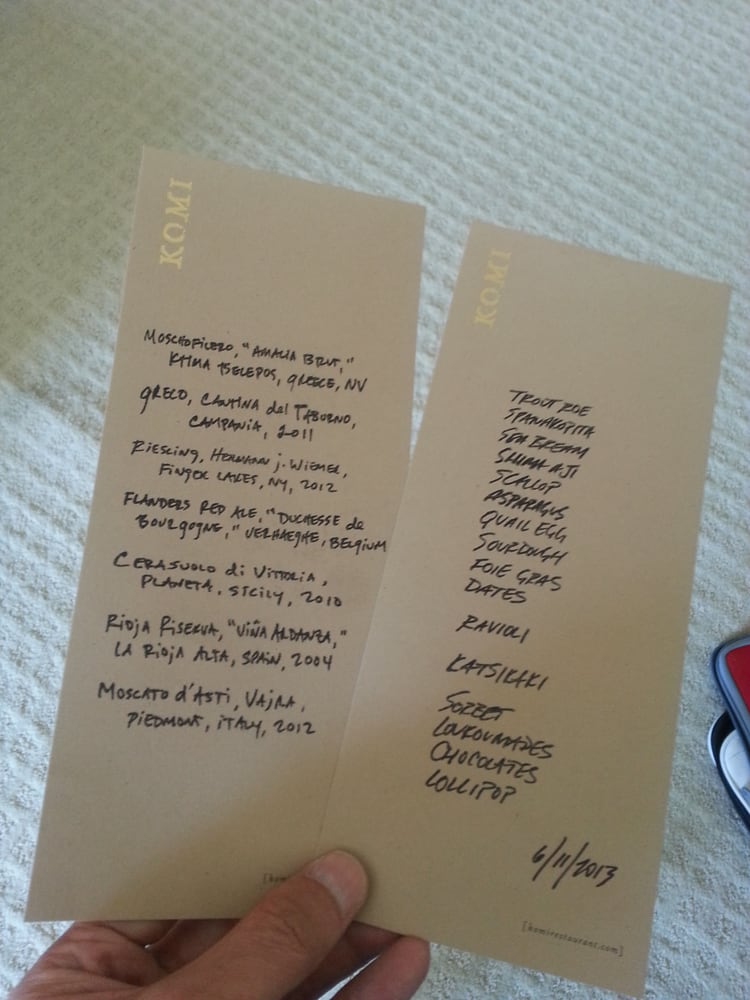 KOMI
MOSCHOFILERO, "AMALIA BRUT,"
KTIMA TSELEPOS, GREECE, NV
GRECO, CANTINA del TABURNO,
CAMPANIA, 2011
RIESLING, HERMANN J. WIEMER,
FINGER LAKES, NY, 2012
FLANDERS RED ALE, "DUCHESSE de
BOURGOGNE," VERHAEGHE, BELGIUM
CERASUOLO di VITTORIA,
PLANETA, SICILY, 2010
RIOJA RISERVA, "VIÑA ARDANZA,"
LA RIOJA ALTA, SPAIN, 2004
MOSCATO d'ASTI, VAJRA,
PIEDMONT, ITALY, 2012
KOMI
TROUT ROE
SPANAKOPITA
SEA BREAM
SHIMA AJI
SCALLOP
ASPARAGUS
QUAIL EGG
SOURDOUGH
FOIE GRAS
DATES
RAVIOLI
KATSIKAKI
SORBET
LOUKOUMADES
CHOCOLATES
LOLLIPOP
6/11/2013
[komirestaurant.com]